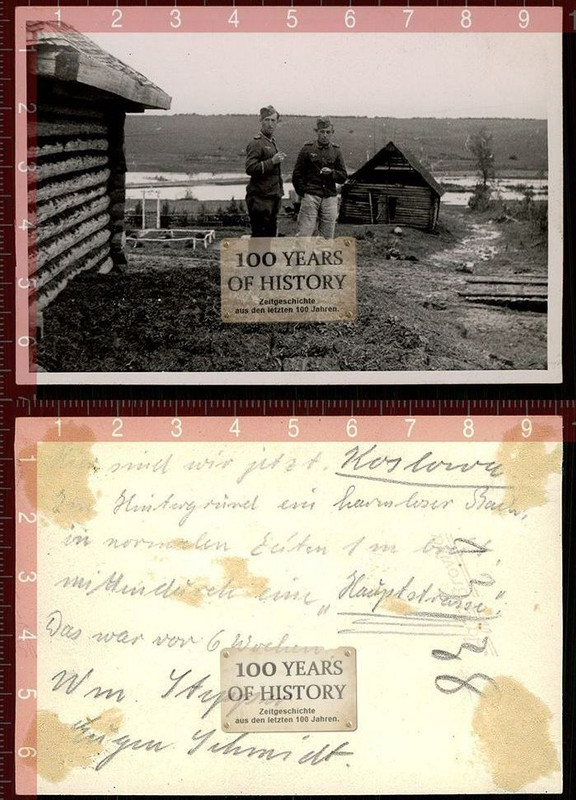 1 2 3 4 5 6 7 8 9
2
3
4
5
6
100 YEARS
OF HISTORY
Zeitgeschichte
aus den letzten 100 Jahren.
1 2 3 4 5 6 7 8 9
1
2
3
4
5
6
sind wir jetzt. Koslowa
Im Hintergrund ein harmloser Bach,
in normalen Zeiten 1 m breit,
mittendurch eine „Hauptstrasse“.
Das war vor 6 Wochen
Wm.
Schmidt.
100 YEARS
OF HISTORY
Zeitgeschichte
aus den letzten 100 Jahren.